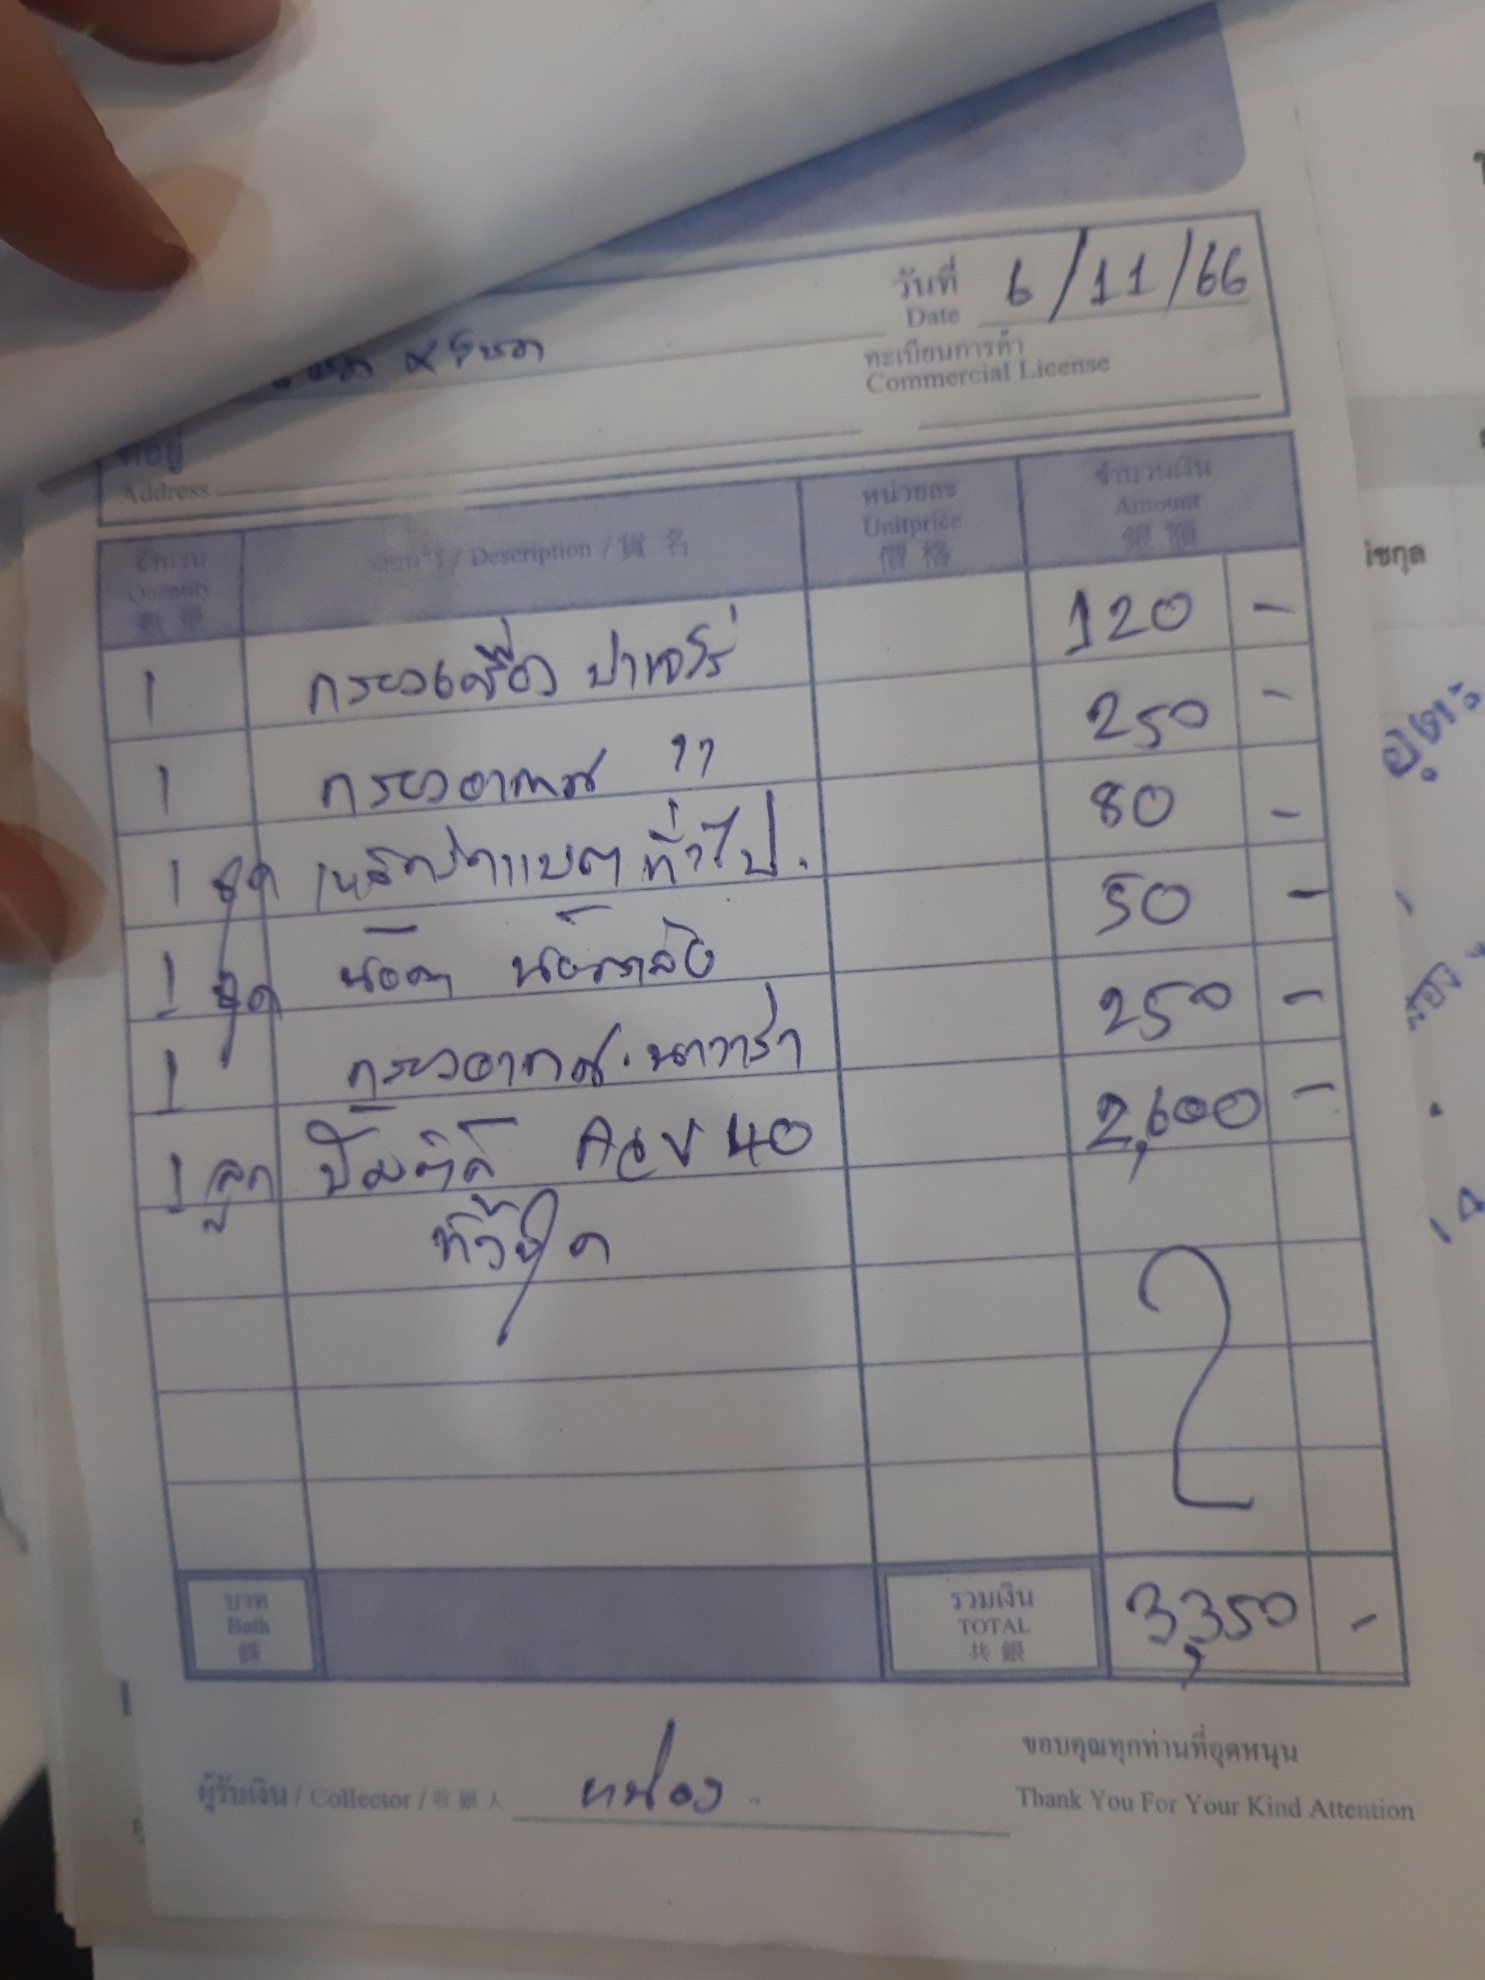 วันที่ 6/11/66
Date
ทะเบียนการค้า
Commercial License
ที่อยู่
Address
จำนวน รายการ / Description / 貨 名 หน่วยละ จำนวนเงิน
Quantity Unitprice Amount
數 量 價 格 銀 額
1 กรองเครื่อง ปาเจโร่ 120 -
1 กรองอากาศ " 250 -
1 ชุด เหล็กรัดแบตทั่วไป. 80 -
1 ชุด น๊อต 50 -
1 กรองอากาศ. นาวาร่า 250 -
1 ลูก ปั๊มติ๊ก 40 2,600 -
ทั้งชุด
บาท รวมเงิน 3,350 -
Bath TOTAL
銖 共 銀
ผู้รับเงิน / Collector / 收 銀 人 หน่อง.
ขอบคุณทุกท่านที่อุดหนุน
Thank You For Your Kind Attention